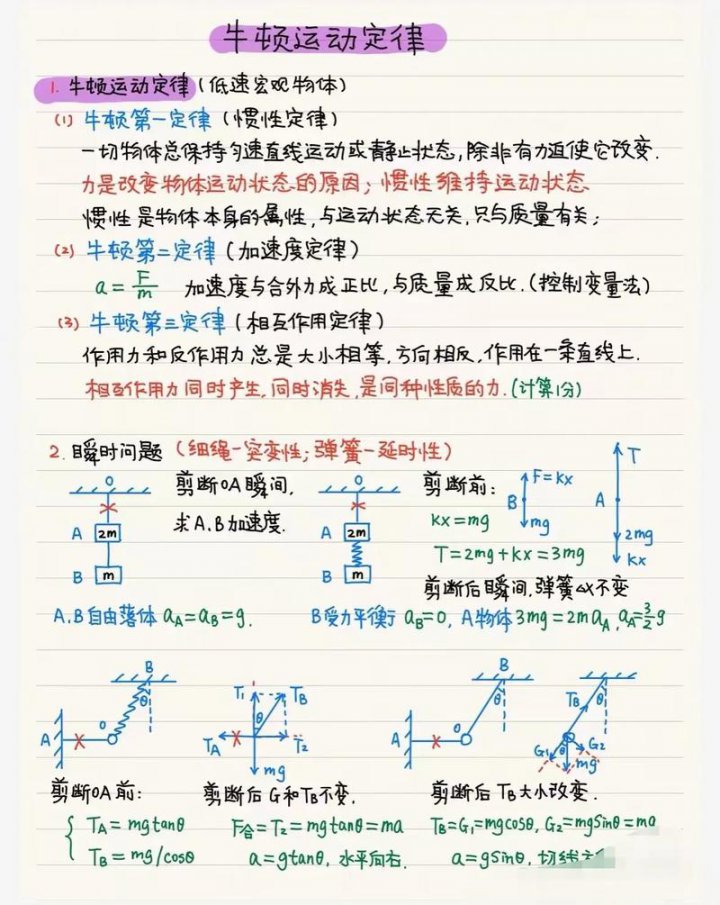 牛顿运动定律
1. 牛顿运动定律(低速宏观物体)
(1) 牛顿第一定律(惯性定律)
一切物体总保持匀速直线运动或静止状态,除非有力迫使它改变.
力是改变物体运动状态的原因; 惯性维持运动状态
惯性是物体本身的属性,与运动状态无关,只与质量有关;
(2) 牛顿第二定律(加速度定律)
a = F/m 加速度与合外力成正比,与质量成反比.(控制变量法)
(3) 牛顿第三定律(相互作用定律)
作用力和反作用力总是大小相等,方向相反,作用在一条直线上.
相互作用力同时产生,同时消失,是同种性质的力.(计算1分)
2. 瞬时问题(细绳-突变性;弹簧-延时性)
O
A 2m
B m
剪断OA瞬间,
求A.B加速度.
A.B自由落体 aA=aB=g.
O
A 2m
B m
剪断前:
kx=mg
T=2mg+kx=3mg
B F=kx mg
A T 2mg kx
剪断后瞬间,弹簧△x不变
B受力平衡 aB=0, A物体3mg=2maA, aA=3/2g
B θ O A
T1 TB θ TA T2 mg
B θ O A
TB θ G1 θ G2 mg
剪断OA前:
TA=mgtanθ
TB=mg/cosθ
剪断后G和TB不变.
F合=T2=mgtanθ=ma
a=gtanθ, 水平向右.
剪断后TB大小改变.
TB=G1=mgcosθ, G2=mgsinθ=ma
a=gsinθ, 切线